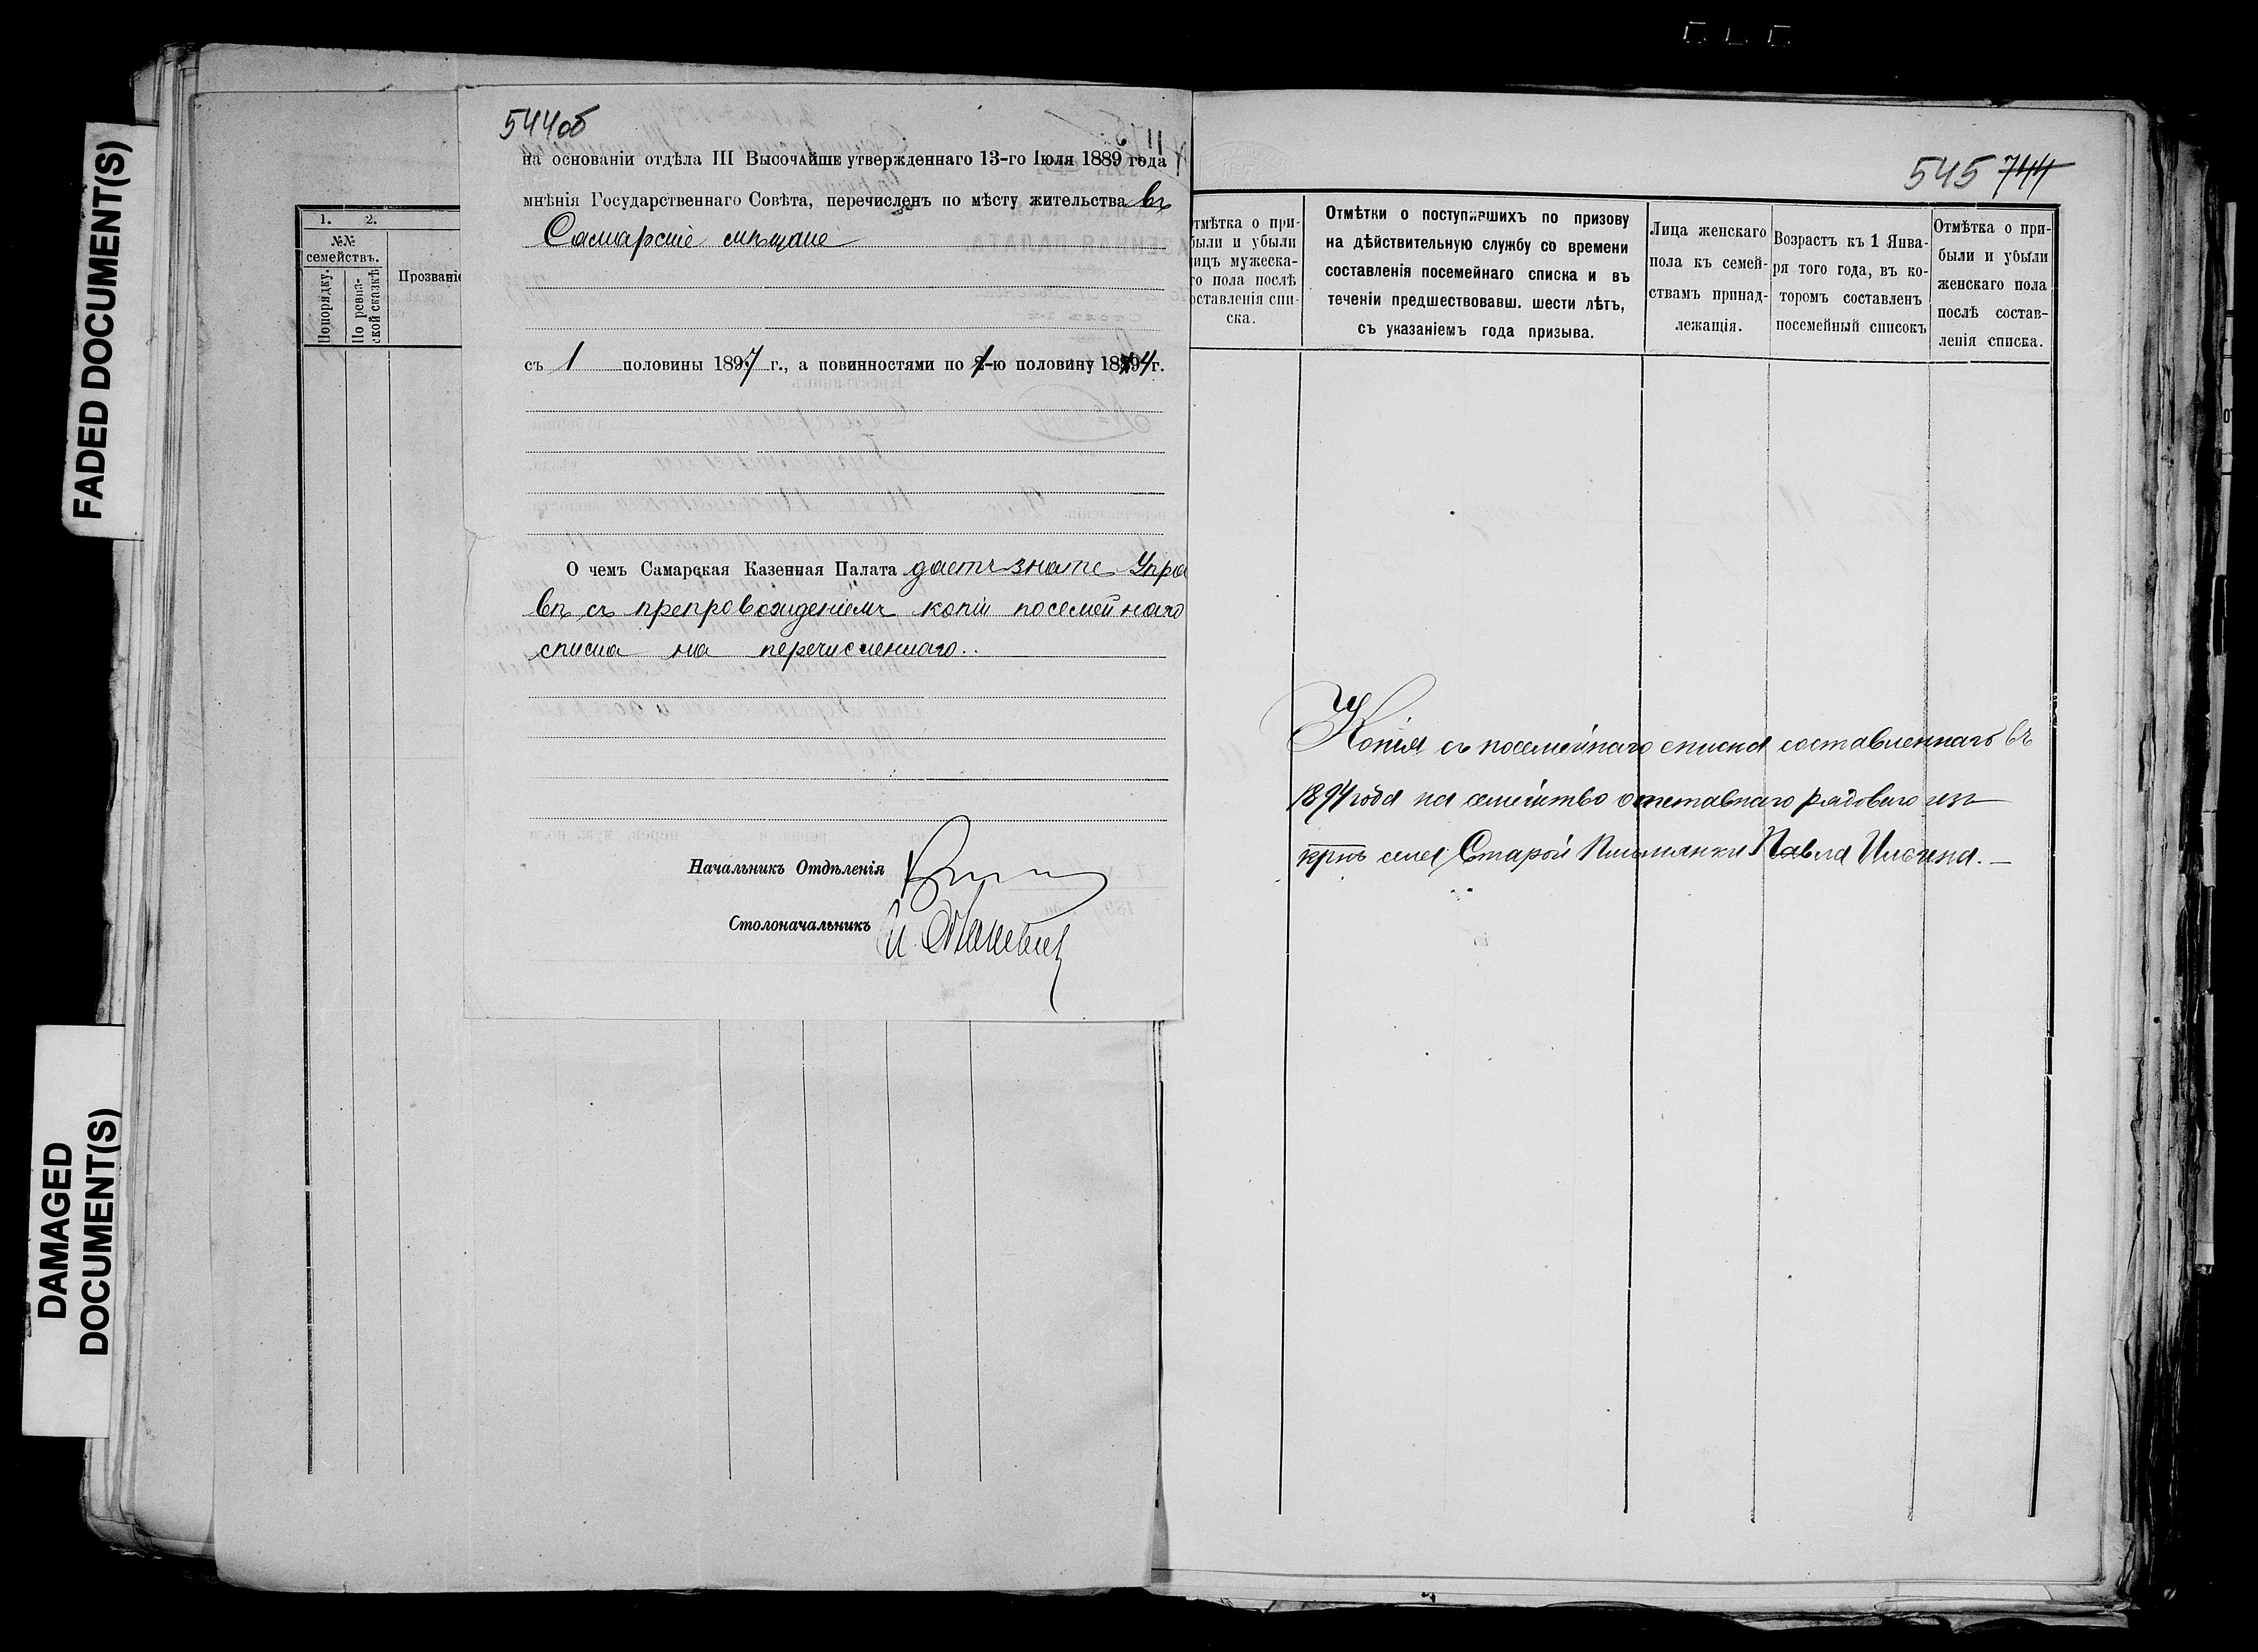 FADED DOCUMENT(S)
DAMAGED
DOCUMENT(S)
1. 2.
№№
семействъ.
Попорядку.
По ревиз-
ской сказкѣ
Прозваніе
544об
на основаніи отдѣла III Высочайше утвержденнаго 13-го Іюля 1889 года
мнѣнія Государственнаго Совѣта, перечисленъ по мѣсту жительства въ
Самарскіе мѣщане
съ 1 половины 1897 г., а повинностями по 1-ю половину 1894 г.
О чемъ Самарская Казенная Палата даетъ знать Упра
вѣ съ препровожденіемъ копіи посемейнаго
списка на перечисленнаго.
Начальникъ Отдѣленія
Столоначальникъ
545 744
тмѣтка о при-
были и убыли
лицъ мужеска-
го пола послѣ
составленія спи-
ска.
Отмѣтки о поступившихъ по призову
на дѣйствительную службу со времени
составленія посемейнаго списка и въ
теченіи предшествовавш. шести лѣтъ,
съ указаніемъ года призыва.
Лица женскаго
пола къ семей-
ствамъ принад-
лежащія.
Возрастъ къ 1 Янва-
ря того года, въ ко-
торомъ составленъ
посемейный списокъ
Отмѣтка о при-
были и убыли
женскаго пола
послѣ состав-
ленія списка.
Копія съ посемейнаго списка составленнаго въ
1894 года на семейство отставнаго рядоваго изъ
крнъ села Старой Письмянки Павла Ильина.